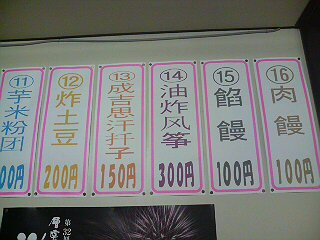 ⑪芋米粉团
00円
⑫炸土豆
200円
⑬成吉思汗扦子
150円
⑭油炸风筝
300円
⑮餡饅
100円
⑯肉饅
100円
第32回